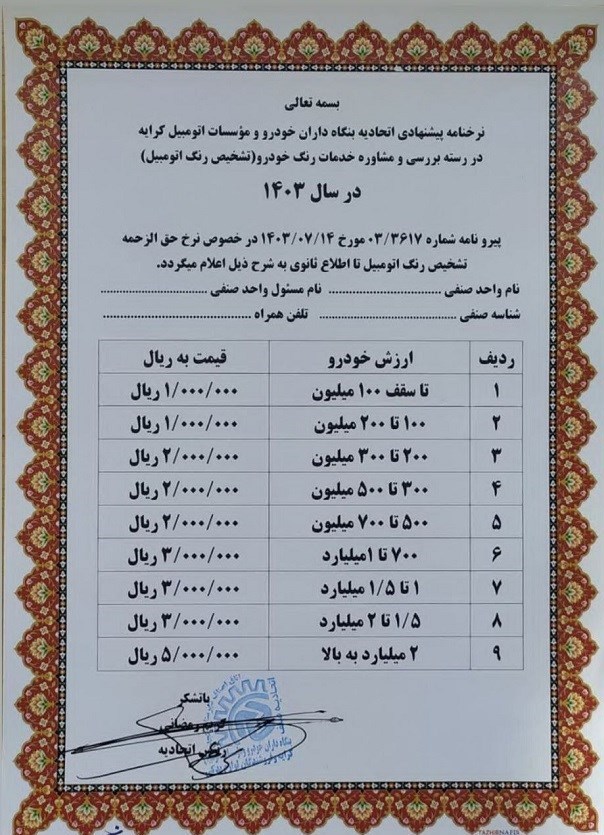 بسمه تعالی
نرخنامه پیشنهادی اتحادیه بنگاه داران خودرو و مؤسسات اتومبیل کرایه
در رسته بررسی و مشاوره خدمات رنگ خودرو(تشخیص رنگ اتومبیل)
در سال ۱۴۰۳
پیرو نامه شماره ۰۳/۳۶۱۷ مورخ ۱۴۰۳/۰۷/۱۴ در خصوص نرخ حق الزحمه
تشخیص رنگ اتومبیل تا اطلاع ثانوی به شرح ذیل اعلام میگردد.
نام واحد صنفی ................................ نام مسئول واحد صنفی ................................
شناسه صنفی ........................................ تلفن همراه ............................................
ردیف ارزش خودرو قیمت به ریال
۱ تا سقف ۱۰۰ میلیون ۱/۰۰۰/۰۰۰ ریال
۲ ۱۰۰ تا ۲۰۰ میلیون ۱/۰۰۰/۰۰۰ ریال
۳ ۲۰۰ تا ۳۰۰ میلیون ۲/۰۰۰/۰۰۰ ریال
۴ ۳۰۰ تا ۵۰۰ میلیون ۲/۰۰۰/۰۰۰ ریال
۵ ۵۰۰ تا ۷۰۰ میلیون ۲/۰۰۰/۰۰۰ ریال
۶ ۷۰۰ تا ۱میلیارد ۳/۰۰۰/۰۰۰ ریال
۷ ۱ تا ۱/۵ میلیارد ۳/۰۰۰/۰۰۰ ریال
۸ ۱/۵ تا ۲ میلیارد ۳/۰۰۰/۰۰۰ ریال
۹ ۲ میلیارد به بالا ۵/۰۰۰/۰۰۰ ریال
باتشکر
رمضانی
اتحادیه